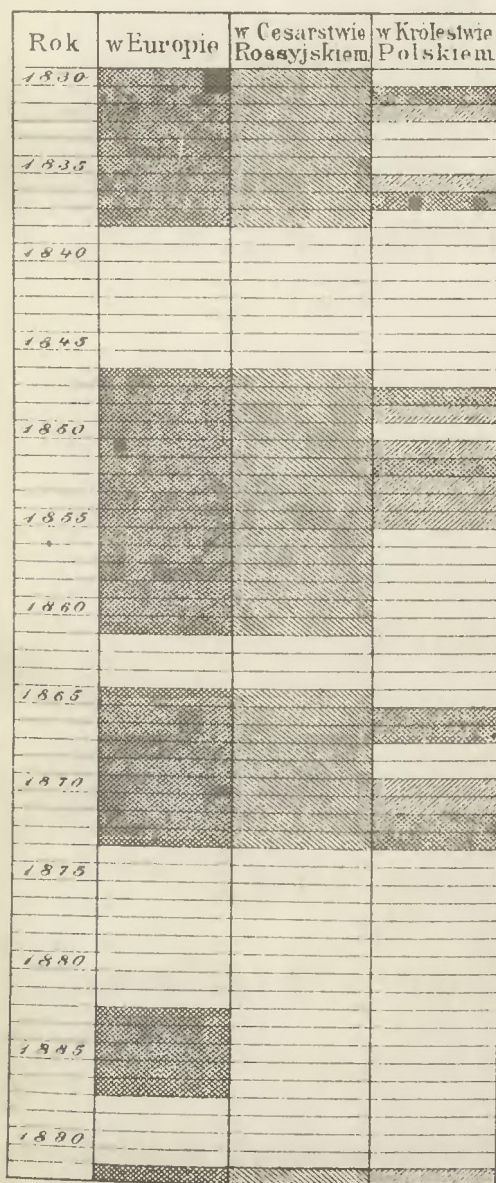 Rok
w Europie
w Cesarstwie
Rossyjskiem
w Królestwie
Polskiem
1830
1835
1840
1845
1850
1855
1860
1865
1870
1875
1880
1885
1890